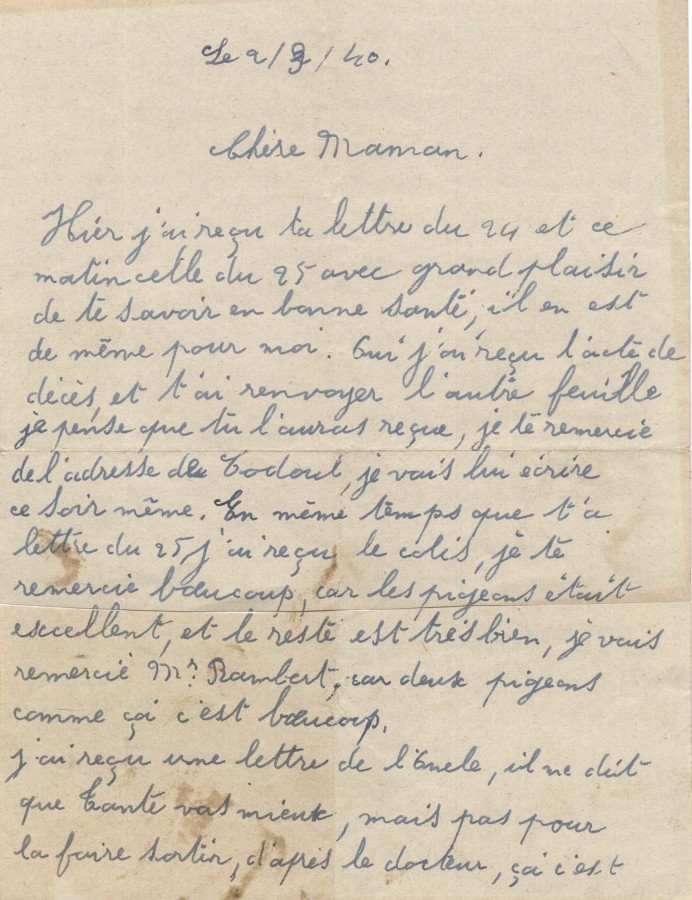 Le 2/3/40.
Chère Maman.
Hièr j'ai reçu ta lettre du 24 et ce
matin celle du 25 avec grand plaisir
de te savoir en bonne santé, il en est
de même pour moi. Oui j'ai reçu l'acte de
décès, et t'ai renvoyer l'autre feuille
je pense que tu l'auras reçue, je te remercie
de l'adresse de Todout, je vais lui écrire
ce soir même. En même temps que t'a
lettre du 25 j'ai reçu le colis, je te
remercie bœucoup, car les pigeons était
excellent, et le reste est très bien, je vais
remercié Mr. Rambert, car deux pigeons
comme ça c'est bœucoup.
j'ai reçu une lettre de l'Oncle, il me dit
que Tante vas mieux, mais pas pour
la faire sortir, d'après le docteur, ça c'est